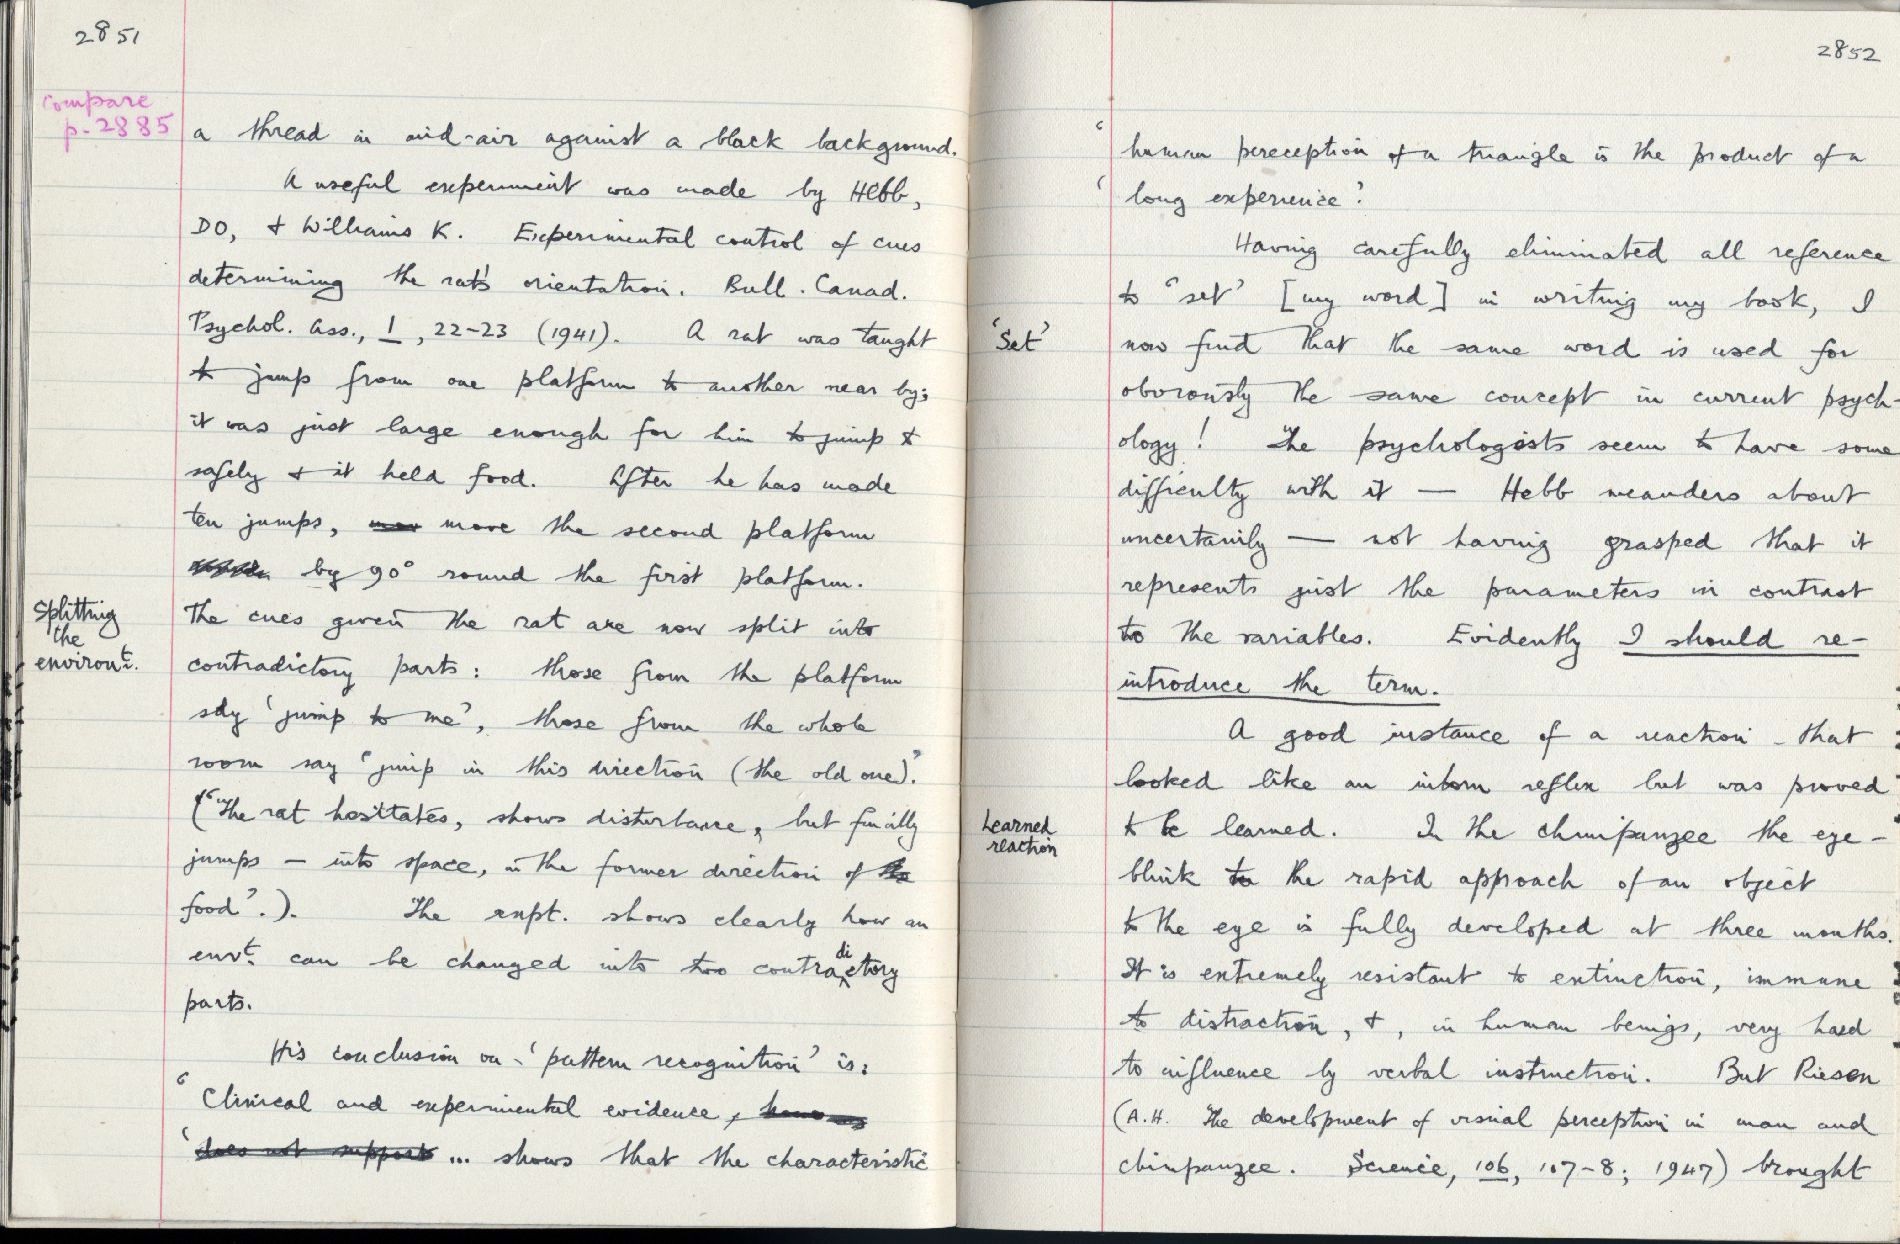 2851
Compare
p. 2885
a thread in mid-air against a black background.
A useful experiment was made by Hebb,
DO, & Williams K. Experimental control of cues
determining the rat's orientation. Bull. Canad.
Psychol. Ass., 1, 22-23 (1941). A rat was taught
to jump from one platform to another near by;
it was just large enough for him to jump to
safely & it held food. After he has made
ten jumps, move the second platform
by 90° round the first platform.
Splitting
the
environt.
The cues given the rat are now split into
contradictory parts: those from the platform
say 'jump to me', those from the whole
room say 'jump in this direction (the old one)'.
("The rat hesitates, shows disturbance, but finally
jumps – into space, in the former direction of
food'.). The expt. shows clearly how an
envt. can be changed into two contradictory
parts.
His conclusion on 'pattern recognition' is:
'Clinical and experimental evidence,
' does not support ... shows that the characteristic
2852
'human perception of a triangle is the product of a
'long experience'.
Having carefully eliminated all reference
to 'set' [my word] in writing my book, I
'Set'
now find that the same word is used for
obviously the same concept in current psych-
ology! The psychologists seem to have some
difficulty with it — Hebb meanders about
uncertainly — not having grasped that it
represents just the parameters in contrast
to the variables. Evidently I should re-
introduce the term.
A good instance of a reaction that
looked like an inborn reflex but was proved
Learned
reaction
to be learned. In the chimpanzee the eye-
blink to the rapid approach of an object
to the eye is fully developed at three months.
It is extremely resistant to extinction, immune
to distraction, &, in human beings, very hard
to influence by verbal instruction. But Riesen
(A.H. The development of visual perception in man and
chimpanzee. Science, 106, 107-8; 1947) brought